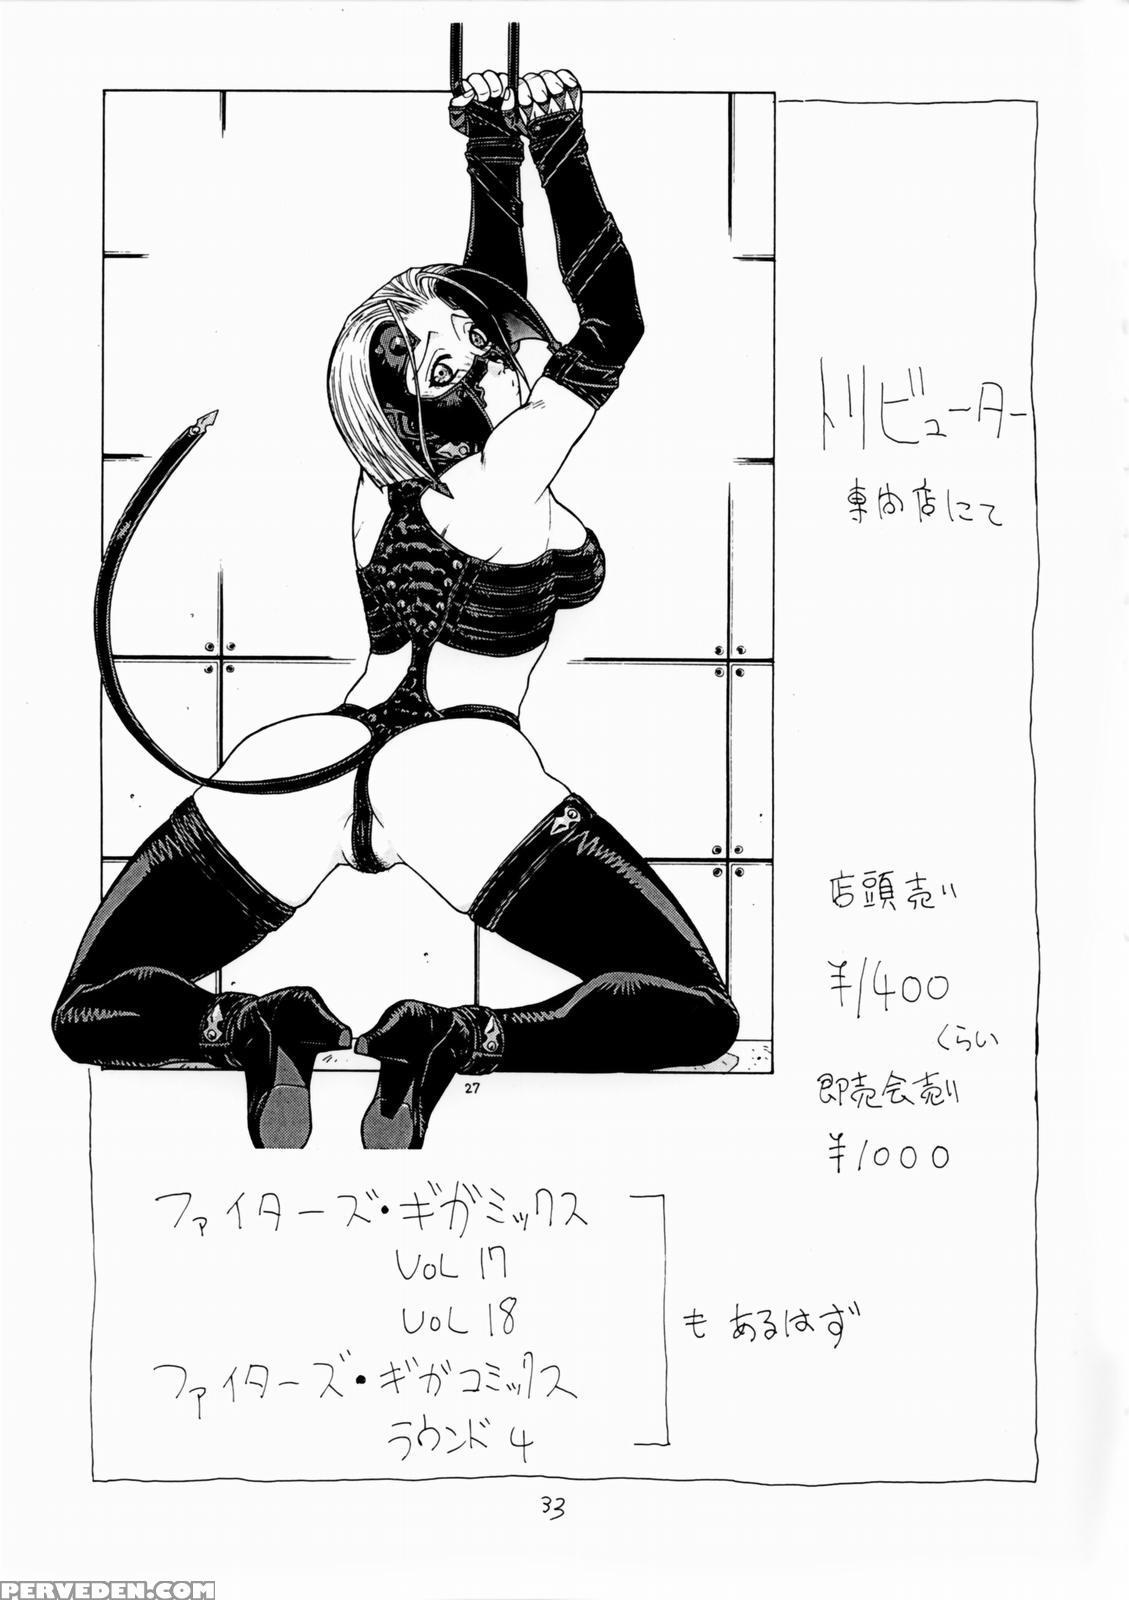 トリビューター
専門店にて
店頭売り
¥1400
くらい
即売会売り
¥1000
27
ファイターズ・ギガミックス
VOL 17
VOL 18
も あるはず
ファイターズ・ギガコミックス
ラウンド 4
33
PERVEDEN.COM